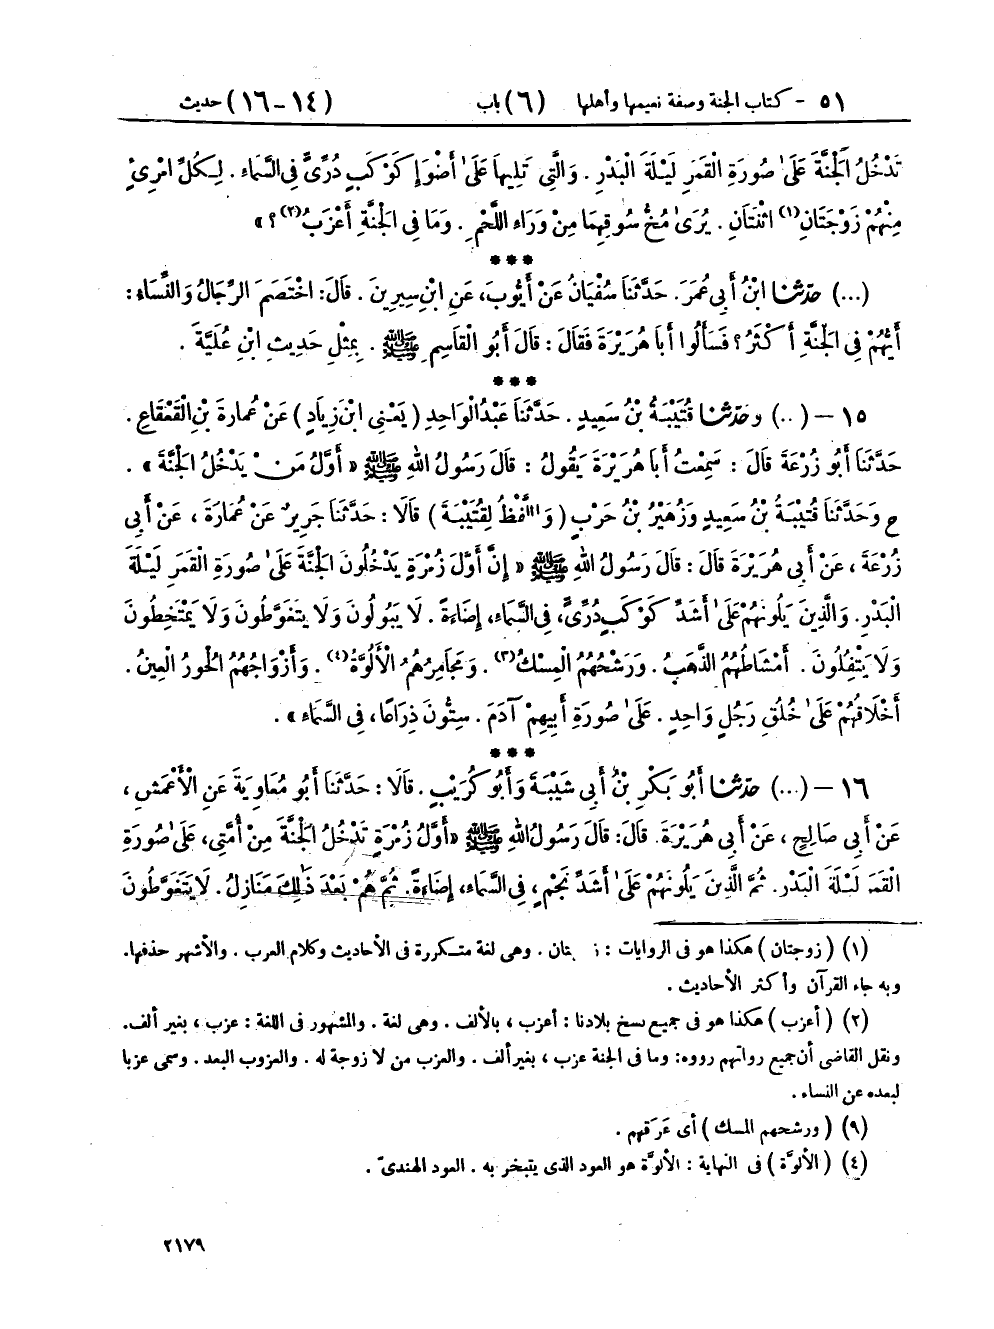 ٥١ - كتاب الجنة وصفة نعيمها وأهلها (٦) باب (١٤-١٦) حديث
تَدْخُلُ الْجَنَّةَ عَلَىٰ صُورَةِ الْقَمَرِ لَيْلَةَ الْبَدْرِ . وَالَّتِي تَلِيهَا عَلَىٰ أَضْوَإِ كَوْكَبٍ دُرِّىٍّ فِى السَّمَاءِ . لِكُلِّ امْرِئٍ
مِنْهُمْ زَوْجَتَانِ(١) اثْنَتَانِ . يُرَىٰ مُخُّ سُوقِهِمَا مِنْ وَرَاءِ اللَّحْمِ . وَمَا فِى الْجَنَّةِ أَعْزَبُ(٢) ؟ »
***
(...) حَدَّثَنَا ابْنُ أَبِى عُمَرَ . حَدَّثَنَا سُفْيَانُ عَنْ أَيُّوبَ ، عَنِ ابْنِ سِيرِينَ . قَالَ : اخْتَصَمَ الرِّجَالُ وَالنِّسَاءُ :
أَيُّهُمْ فِى الْجَنَّةِ أَكْثَرُ ؟ فَسَأَلُوا أَبَا هُرَيْرَةَ فَقَالَ : قَالَ أَبُو الْقَاسِمِ ﷺ . بِمِثْلِ حَدِيثِ ابْنِ عُلَيَّةَ .
***
١٥ – (...) وحَدَّثَنَا قُتَيْبَةُ بْنُ سَعِيدٍ . حَدَّثَنَا عَبْدُ الْوَاحِدِ ( يَعْنِى ابْنَ زِيَادٍ ) عَنْ عُمَارَةَ بْنِ الْقَعْقَاعِ .
حَدَّثَنَا أَبُو زُرْعَةَ قَالَ : سَمِعْتُ أَبَا هُرَيْرَةَ يَقُولُ : قَالَ رَسُولُ اللهِ ﷺ « أَوَّلُ مَنْ يَدْخُلُ الْجَنَّةَ » .
ح وَحَدَّثَنَا قُتَيْبَةُ بْنُ سَعِيدٍ وَزُهَيْرُ بْنُ حَرْبٍ ( وَاللَّفْظُ لِقُتَيْبَةَ ) قَالَا : حَدَّثَنَا جَرِيرٌ عَنْ عُمَارَةَ ، عَنْ أَبِى
زُرْعَةَ ، عَنْ أَبِى هُرَيْرَةَ قَالَ : قَالَ رَسُولُ اللهِ ﷺ « إِنَّ أَوَّلَ زُمْرَةٍ يَدْخُلُونَ الْجَنَّةَ عَلَىٰ صُورَةِ الْقَمَرِ لَيْلَةَ
الْبَدْرِ . وَالَّذِينَ يَلُونَهُمْ عَلَىٰ أَشَدِّ كَوْكَبٍ دُرِّىٍّ ، فِى السَّمَاءِ ، إِضَاءَةً . لَا يَبُولُونَ وَلَا يَتَغَوَّطُونَ وَلَا يَمْتَخِطُونَ
وَلَا يَتْفِلُونَ . أَمْشَاطُهُمُ الذَّهَبُ . وَرَشْحُهُمُ الْمِسْكُ(٣) . وَمَجَامِرُهُمُ الْأَلُوَّةُ(٤) . وَأَزْوَاجُهُمُ الْحُورُ الْعِينُ .
أَخْلَاقُهُمْ عَلَىٰ خُلُقِ رَجُلٍ وَاحِدٍ . عَلَىٰ صُورَةِ أَبِيهِمْ آدَمَ . سِتُّونَ ذِرَاعًا ، فِى السَّمَاءِ » .
***
١٦ – (...) حَدَّثَنَا أَبُو بَكْرِ بْنُ أَبِى شَيْبَةَ وَأَبُو كُرَيْبٍ . قَالَا : حَدَّثَنَا أَبُو مُعَاوِيَةَ عَنِ الْأَعْمَشِ ،
عَنْ أَبِى صَالِحٍ ، عَنْ أَبِى هُرَيْرَةَ . قَالَ : قَالَ رَسُولُ اللهِ ﷺ « أَوَّلُ زُمْرَةٍ تَدْخُلُ الْجَنَّةَ مِنْ أُمَّتِى ، عَلَىٰ صُورَةِ
الْقَمَرِ لَيْلَةَ الْبَدْرِ . ثُمَّ الَّذِينَ يَلُونَهُمْ عَلَىٰ أَشَدِّ نَجْمٍ ، فِى السَّمَاءِ ، إِضَاءَةً . ثُمَّ هُمْ بَعْدَ ذَٰلِكَ مَنَازِلُ . لَا يَتَغَوَّطُونَ
(١) ( زوجتان ) هكذا هو فى الروايات : . وهى لغة متكررة فى الأحاديث وكلام العرب . والأشهر حذفها .
وبه جاء القرآن وأكثر الأحاديث .
(٢) ( أعزب ) هكذا هو فى جميع نسخ بلادنا : أعزب ، بالألف . وهى لغة . والمشهور فى اللغة : عزب ، بغير ألف .
ونقل القاضى أن جميع رواتهم رووه : وما فى الجنة عزب ، بغير ألف . والعزب من لا زوجة له . والعزوب البعد . وسمى عزبا
لبعده عن النساء .
(٩) ( ورشحهم المسك ) أى عَرَقهم .
(٤) ( الألوَّة ) فى النهاية : الألوَّة هو العود الذى يتبخر به . العود الهندىّ .
٢١٧٩